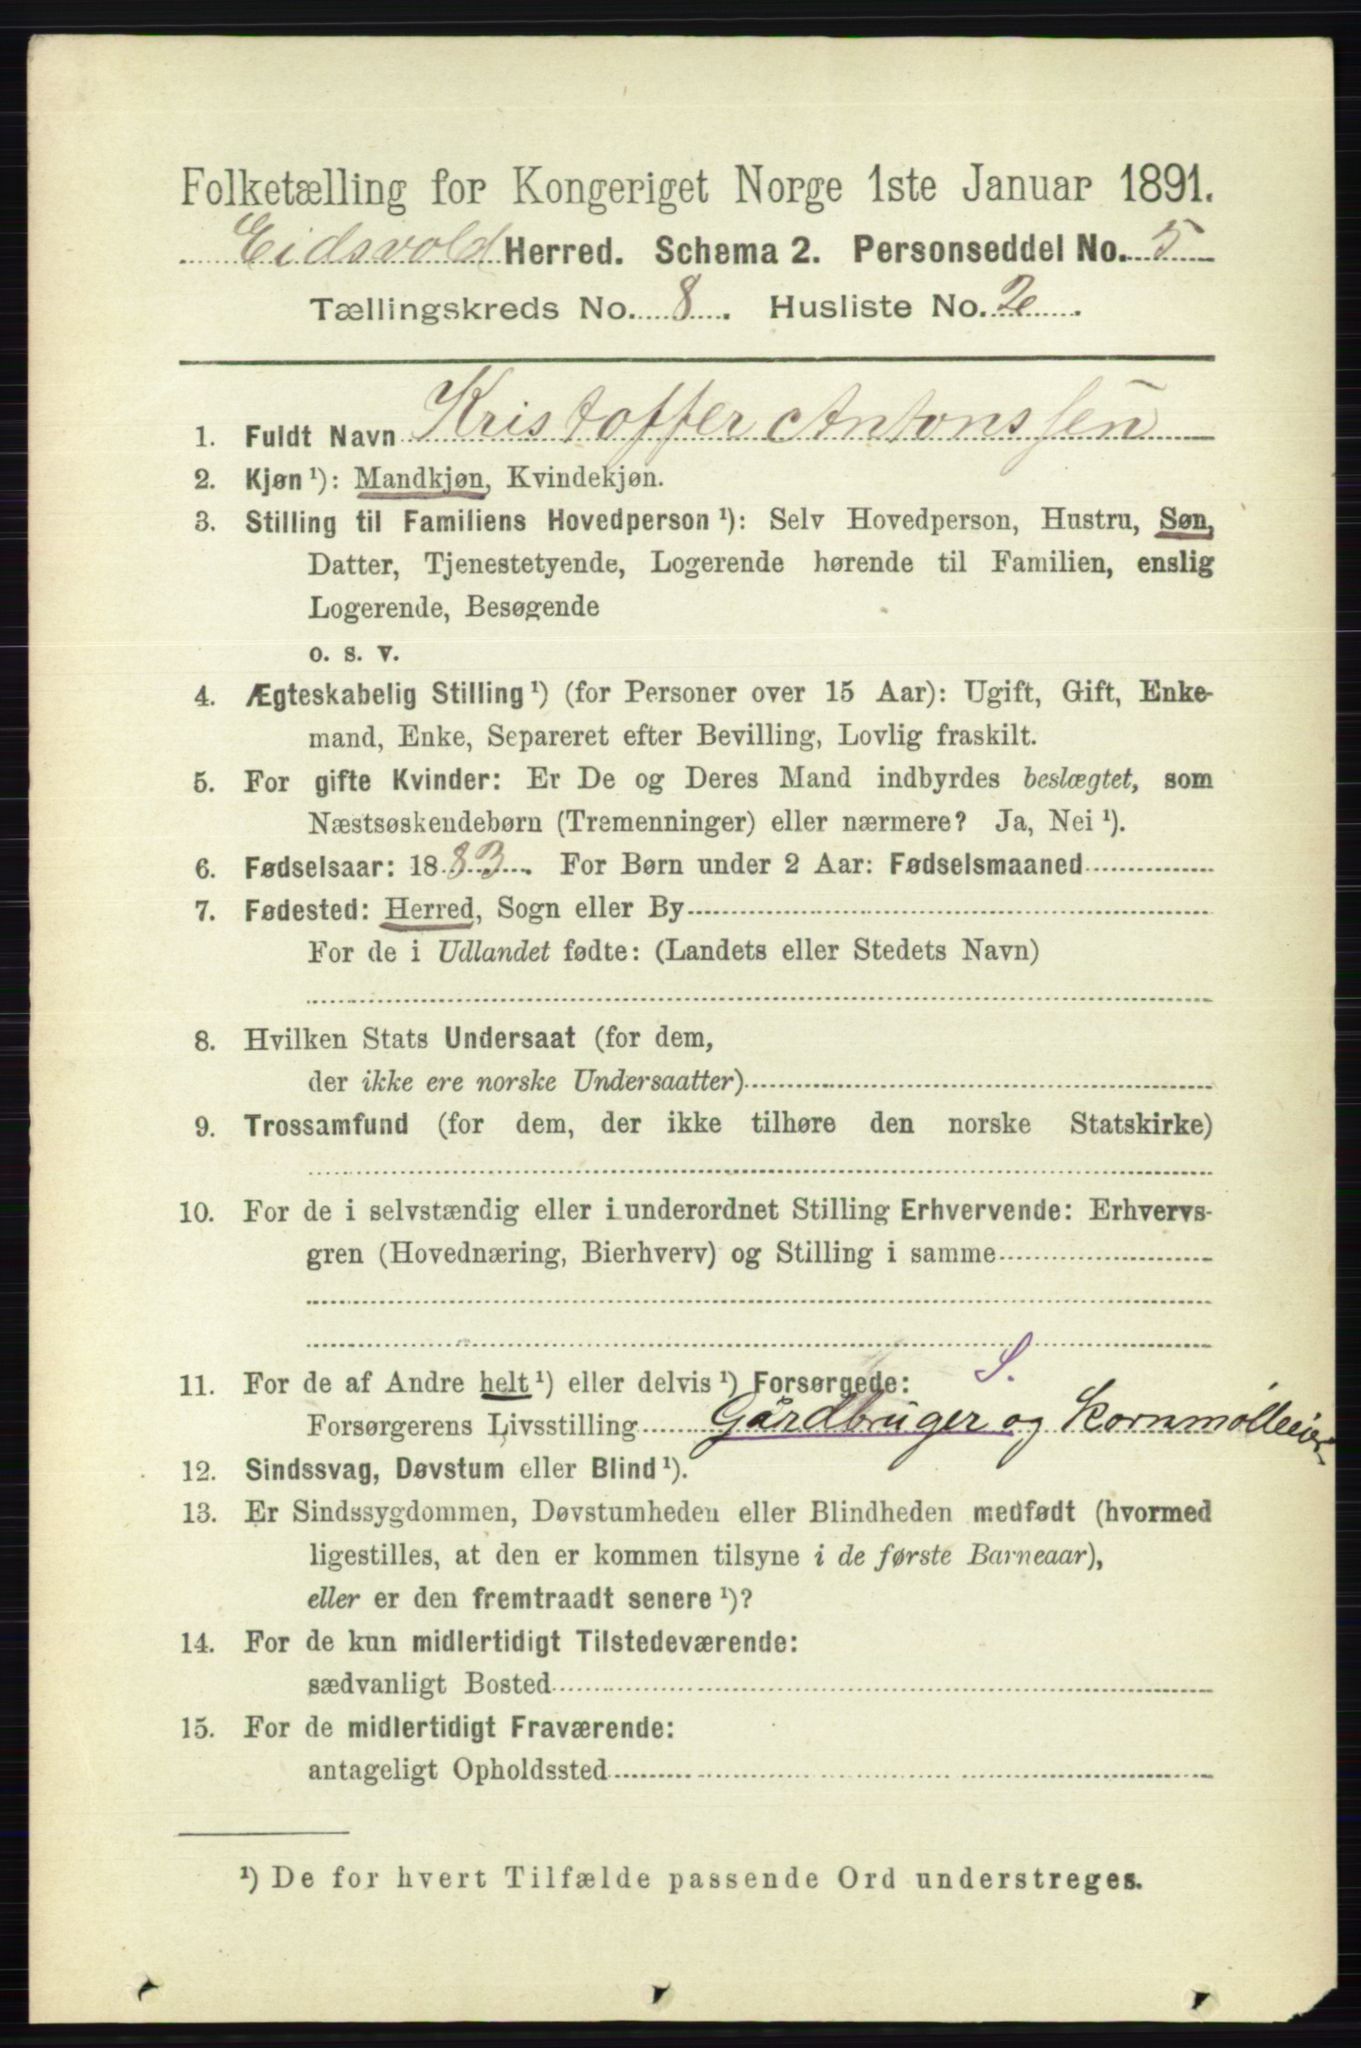 Folketælling for Kongeriget Norge 1ste Januar 1891.
Eidsvold Herred. Schema 2. Personseddel No. 5
Tællingskreds No. 8. Husliste No. 2
1. Fuldt Navn Kristoffer Antonssen
2. Kjøn ¹): Mandkjøn, Kvindekjøn.
3. Stilling til Familiens Hovedperson ¹): Selv Hovedperson, Hustru, Søn,
Datter, Tjenestetyende, Logerende hørende til Familien, enslig
Logerende, Besøgende
o. s. v.
4. Ægteskabelig Stilling ¹) (for Personer over 15 Aar): Ugift, Gift, Enke-
mand, Enke, Separeret efter Bevilling, Lovlig fraskilt.
5. For gifte Kvinder: Er De og Deres Mand indbyrdes beslægtet, som
Næstsøskendebørn (Tremenninger) eller nærmere? Ja, Nei ¹).
6. Fødselsaar: 1883. For Børn under 2 Aar: Fødselsmaaned
7. Fødested: Herred, Sogn eller By
For de i Udlandet fødte: (Landets eller Stedets Navn)
8. Hvilken Stats Undersaat (for dem,
der ikke ere norske Undersaatter)
9. Trossamfund (for dem, der ikke tilhøre den norske Statskirke)
10. For de i selvstændig eller i underordnet Stilling Erhvervende: Erhvervs-
gren (Hovednæring, Bierhverv) og Stilling i samme
S.
11. For de af Andre helt ¹) eller delvis ¹) Forsørgede:
Forsørgerens Livsstilling Gårdbruger og Kornmølleeier
12. Sindssvag, Døvstum eller Blind ¹).
13. Er Sindssygdommen, Døvstumheden eller Blindheden medfødt (hvormed
ligestilles, at den er kommen tilsyne i de første Barneaar),
eller er den fremtraadt senere ¹)?
14. For de kun midlertidigt Tilstedeværende:
sædvanligt Bosted
15. For de midlertidigt Fraværende:
antageligt Opholdssted
¹) De for hvert Tilfælde passende Ord understreges.